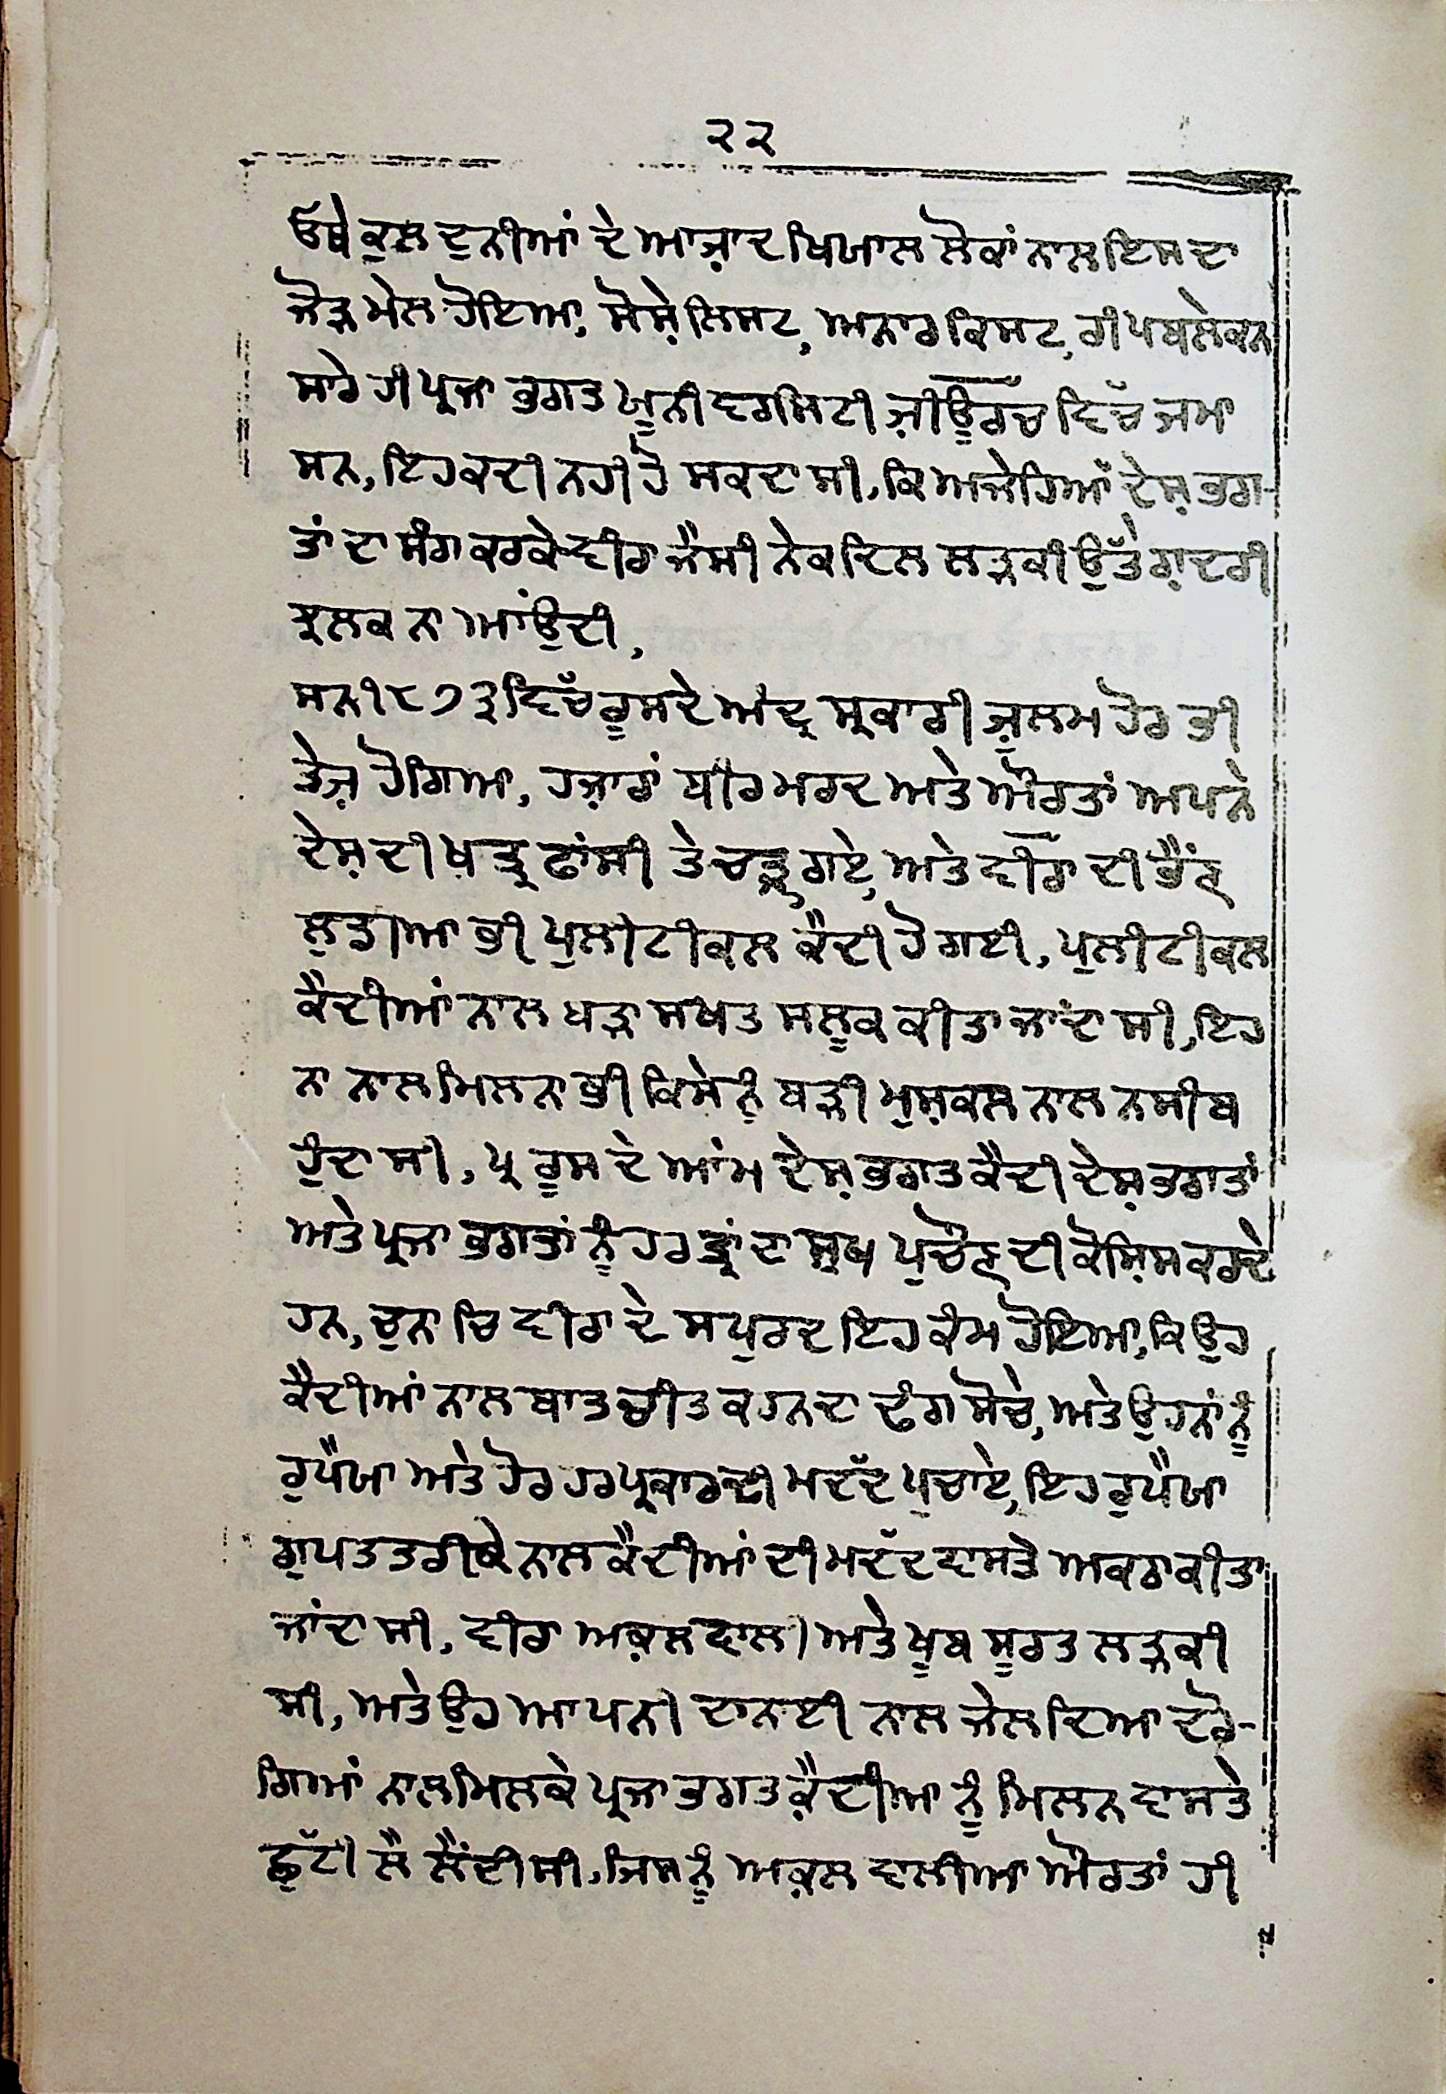 ੨੨
ਓਥੇ ਕੁਲ ਦੁਨੀਆਂ ਦੇ ਆਜ਼ਾਦ ਖਿਯਾਲ ਲੋਕਾਂ ਨਾਲ ਇਸਦਾ
ਜੋੜ ਮੇਲ ਹੋਇਆ, ਸੋਸ਼ੇਲਿਸਟ, ਅਨਾਰਕਿਸਟ, ਰੀਪਬਲੇਕਨ
ਸਾਰੇ ਹੀ ਪ੍ਰਜਾ ਭਗਤ ਯੂਨੀਵਰਸਿਟੀ ਜ਼ੀਊਰਚ ਵਿੱਚ ਜਮਾ
ਸਨ, ਇਹ ਕਦੀ ਨਹੀ ਹੋ ਸਕਦਾ ਸੀ, ਕਿ ਅਜੇਹਿਆਂ ਦੇਸ਼ ਭਗ-
ਤਾਂ ਦਾ ਸੰਗ ਕਰਕੇ ਵੀਰਾ ਜੈਸੀ ਨੇਕ ਦਿਲ ਲੜਕੀ ਉੱਤੇ ਗ਼ਾਦਰੀ
ਝਲਕ ਨਾ ਆਂਉਦੀ,
ਸਨ ੧੮੭੩ ਵਿੱਚ ਰੂਸਦੇ ਅੰਦ੍ਰ ਸ੍ਰਕਾਰੀ ਜ਼ੁਲਮ ਹੋਰ ਭੀ
ਤੇਜ਼ ਹੋਗਿਆ, ਹਜ਼ਾਰਾਂ ਬੀਰ ਮਰਦ ਅਤੇ ਔਰਤਾਂ ਅਪਨੇ
ਦੇਸ਼ ਦੀ ਖ਼ਤ੍ਰ ਫਾਂਸੀ ਤੇ ਚੜ੍ਹ ਗਏ, ਅਤੇ ਵੀਰਾ ਦੀ ਭੈਂਣ
ਲੁਡੀਆ ਭੀ ਪੁਲੀਟੀਕਲ ਕੈਦੀ ਹੋ ਗਈ, ਪੁਲੀਟੀਕਲ
ਕੈਦੀਆਂ ਨਾਲ ਬੜਾ ਸਖਤ ਸਲੂਕ ਕੀਤਾ ਜਾਂਦਾ ਸੀ, ਇਹ
ਨਾ ਨਾਲ ਮਿਲਨਾ ਭੀ ਕਿਸੇ ਨੂੰ ਬੜੀ ਮੁਸ਼ਕਲ ਨਾਲ ਨਸੀਬ
ਹੁੰਦਾ ਸੀ, ਪ੍ਰ ਰੂਸ ਦੇ ਆਂਮ ਦੇਸ਼ ਭਗਤ ਕੈਦੀ ਦੇਸ਼ ਭਗਤਾਂ
ਅਤੇ ਪ੍ਰਜਾ ਭਗਤਾਂ ਨੂੰ ਹਰ ਤ੍ਰਾਂ ਦਾ ਸੁਖ ਪੁਚੌਣ ਦੀ ਕੋਸ਼ਿਸ ਕਰਦੇ
ਹਨ, ਚੁਨਾਚਿ ਵੀਰਾ ਦੇ ਸਪੁਰਦ ਇਹ ਕੰਮ ਹੋਇਆ, ਕਿ ਉਹ
ਕੈਦੀਆਂ ਨਾਲ ਬਾਤ ਚੀਤ ਕਰਨਦਾ ਢੰਗ ਸੋਚੇ, ਅਤੇ ਉਹਨਾਂ ਨੂੰ
ਰੁਪੈਯਾ ਅਤੇ ਹੋਰ ਹਰ ਪ੍ਰਕਾਰ ਦੀ ਮਦੱਦ ਪੁਚਾਏ, ਇਹ ਰੁਪੈਯਾ
ਗੁਪਤ ਤਰੀਕੇ ਨਾਲ ਕੈਦੀਆਂ ਦੀ ਮਦੱਦ ਵਾਸਤੇ ਅਕਠਾ ਕੀਤਾ
ਜਾਂਦਾ ਸੀ, ਵੀਰਾ ਅਕ਼ਲ ਵਾਲੀ ਅਤੇ ਖੂਬ ਸੂਰਤ ਲੜਕੀ
ਸੀ, ਅਤੇ ਉਹ ਆਪਨੀ ਦਾਨਾਈ ਨਾਲ ਜੇਲ ਦਿਆ ਦਰੋ-
ਗਿਆਂ ਨਾਲ ਮਿਲਕੇ ਪ੍ਰਜਾ ਭਗਤ ਕ਼ੈਦੀਆ ਨੂੰ ਮਿਲਨ ਵਾਸਤੇ
ਛੁੱਟੀ ਲੈ ਲੈਂਦੀ ਸੀ, ਜਿਸ ਨੂੰ ਅਕ਼ਲ ਵਾਲੀਆ ਔਰਤਾਂ ਹੀ